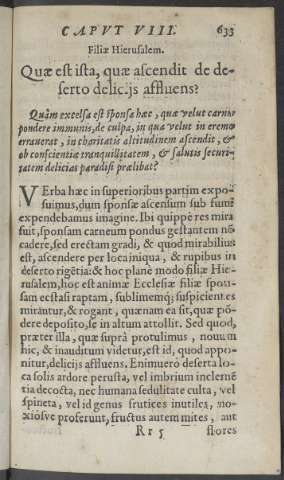 CAPVT VIII. 633
Filiæ Hierusalem.
Quæ est ista, quæ ascendit de de-
serto delicijs affluens?
Quàm excelsa est sponsa hæc, quæ velut carnis
pondere immunis, de culpa, in qua velut in eremo
errauerat, in charitatis altitudinem ascendit, &
ob conscientiæ tranquillitatem, & salutis securi-
tatem delicias paradisi prælibat?
VErba hæc in superioribus partim expo-
suimus, dum sponsæ ascensum sub fumi
expendebamus imagine. Ibi quippè res mira
fuit, sponsam carneum pondus gestantem nō
cadere, sed erectam gradi, & quod mirabilius
est, ascendere per loca iniqua, & rupibus in
deserto rigētia: & hoc planè modo filiæ Hie-
rusalem, hoc est animæ Ecclesiæ filiæ spon-
sam ecstasi raptam, sublimemq; suspicientes
mirantur, & rogant, quænam ea sit, quæ pō-
dere deposito, se in altum attollit. Sed quod,
præter illa, quæ suprà protulimus, nouum
hic, & inauditum videtur, est id, quod appo-
nitur, delicijs affluens. Enimuerò deserta lo-
ca solis ardore perusta, vel imbrium inclemē
tia decocta, nec humana sedulitate culta, vel
spineta, vel id genus frutices inutiles, no-
xiosve proferunt, fructus autem mites, aut
Rr 5 flores